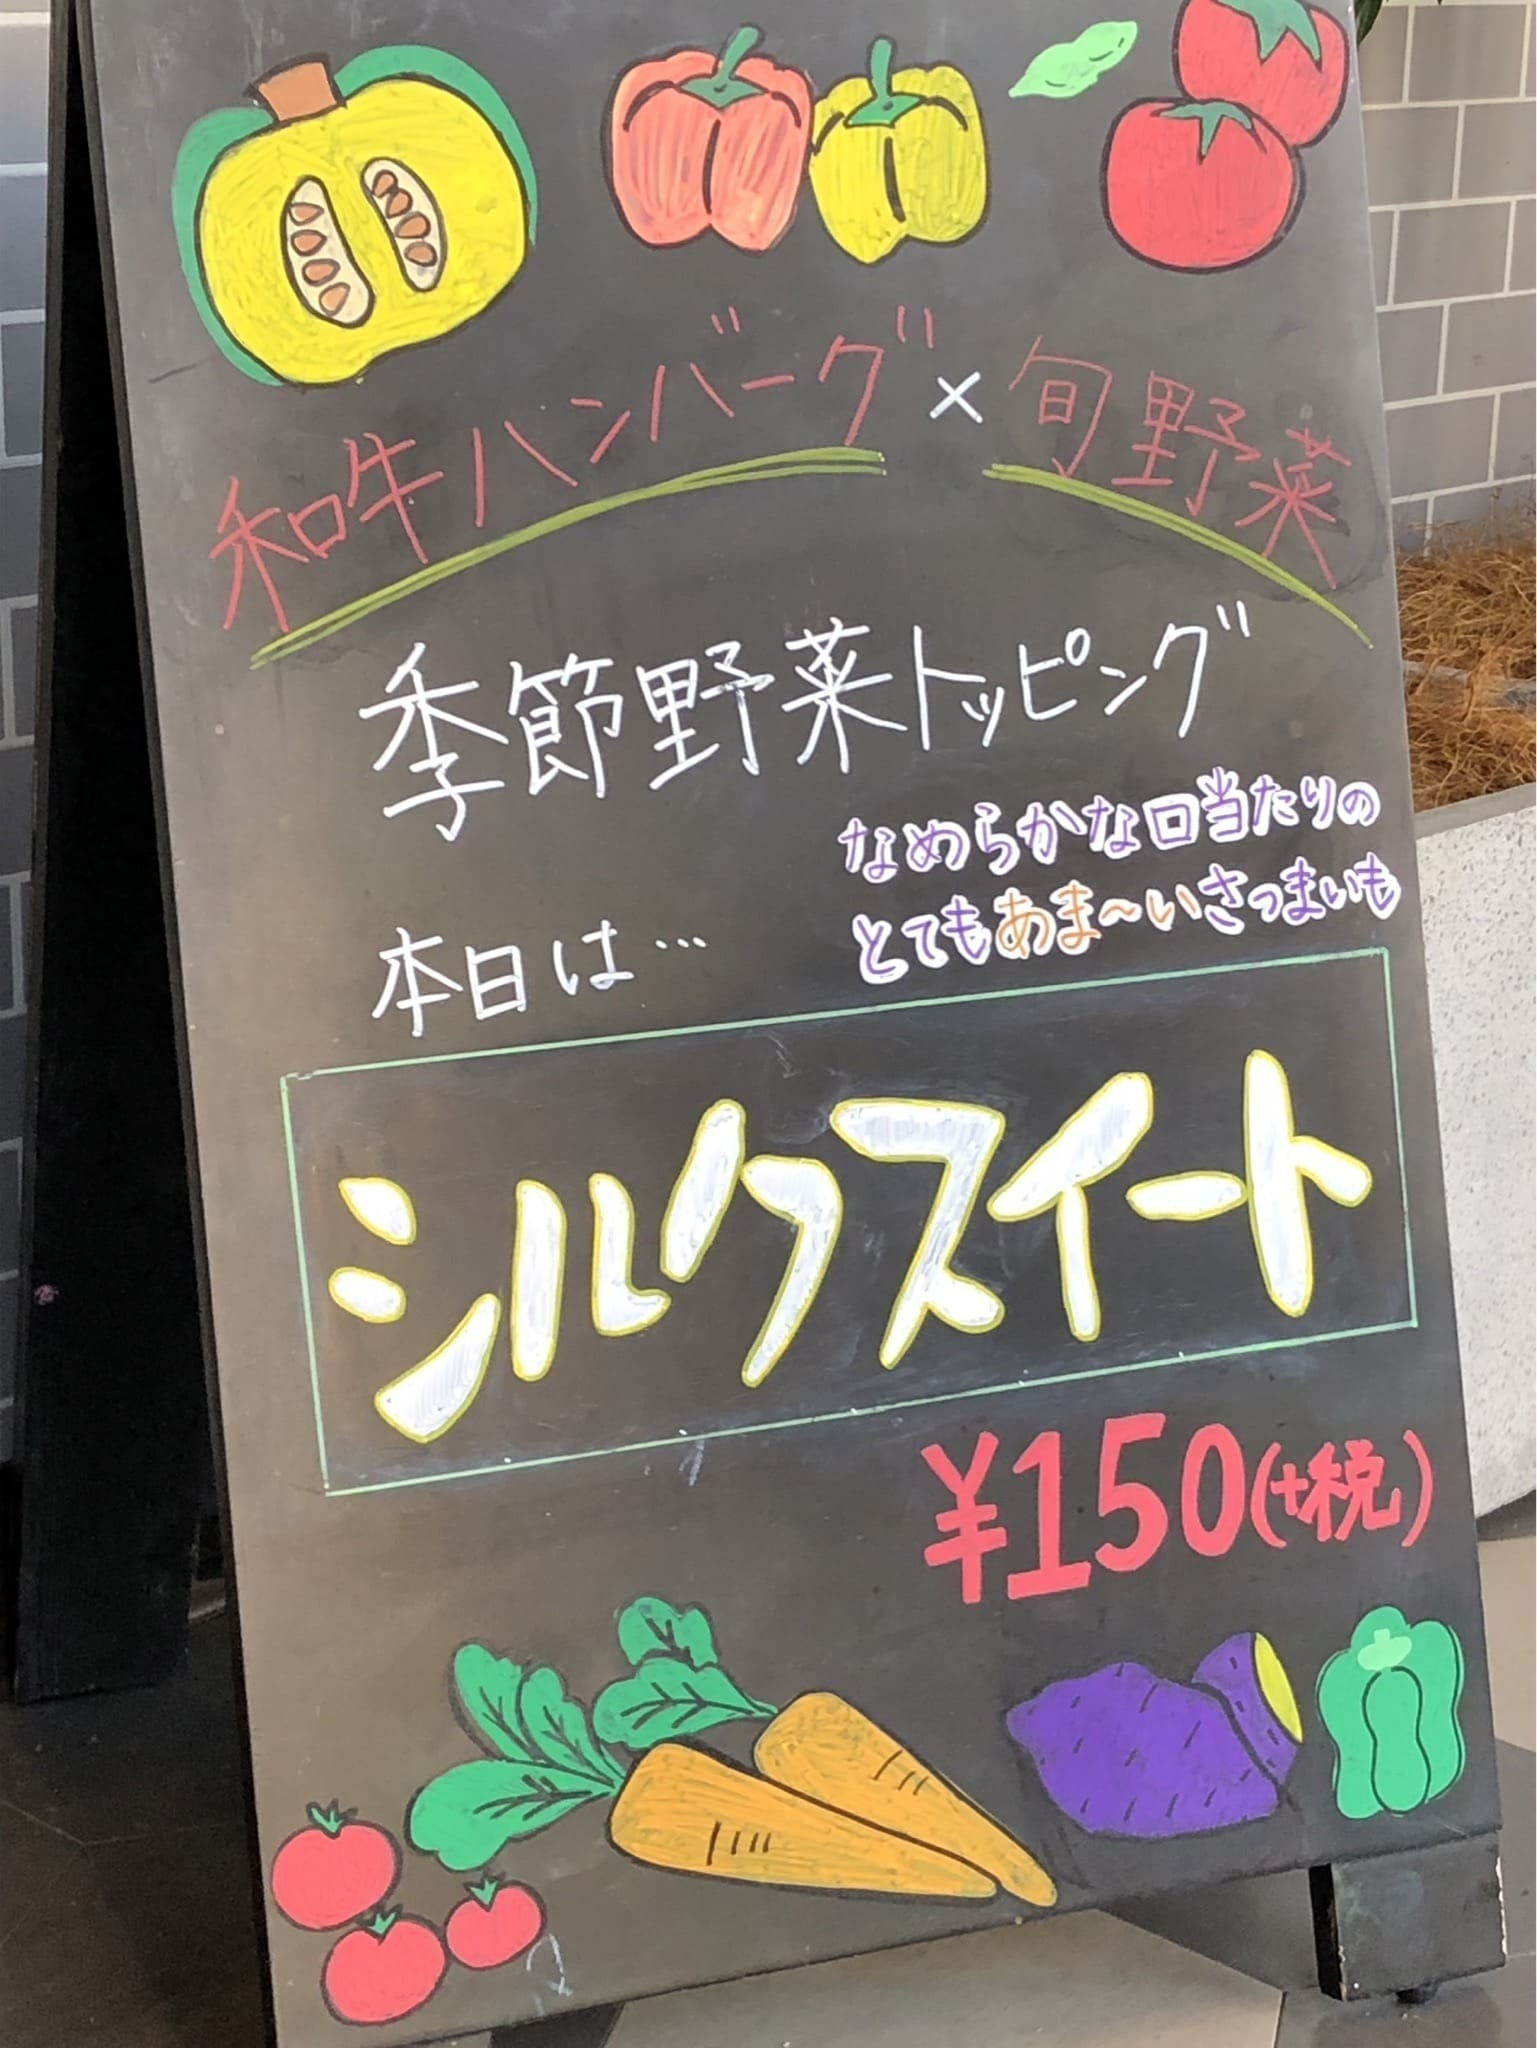 和牛ハンバーグ×旬野菜
季節野菜トッピング
なめらかな口当たりの
とてもあま〜いさつまいも
本日は…
シルクスイート
¥150(+税)